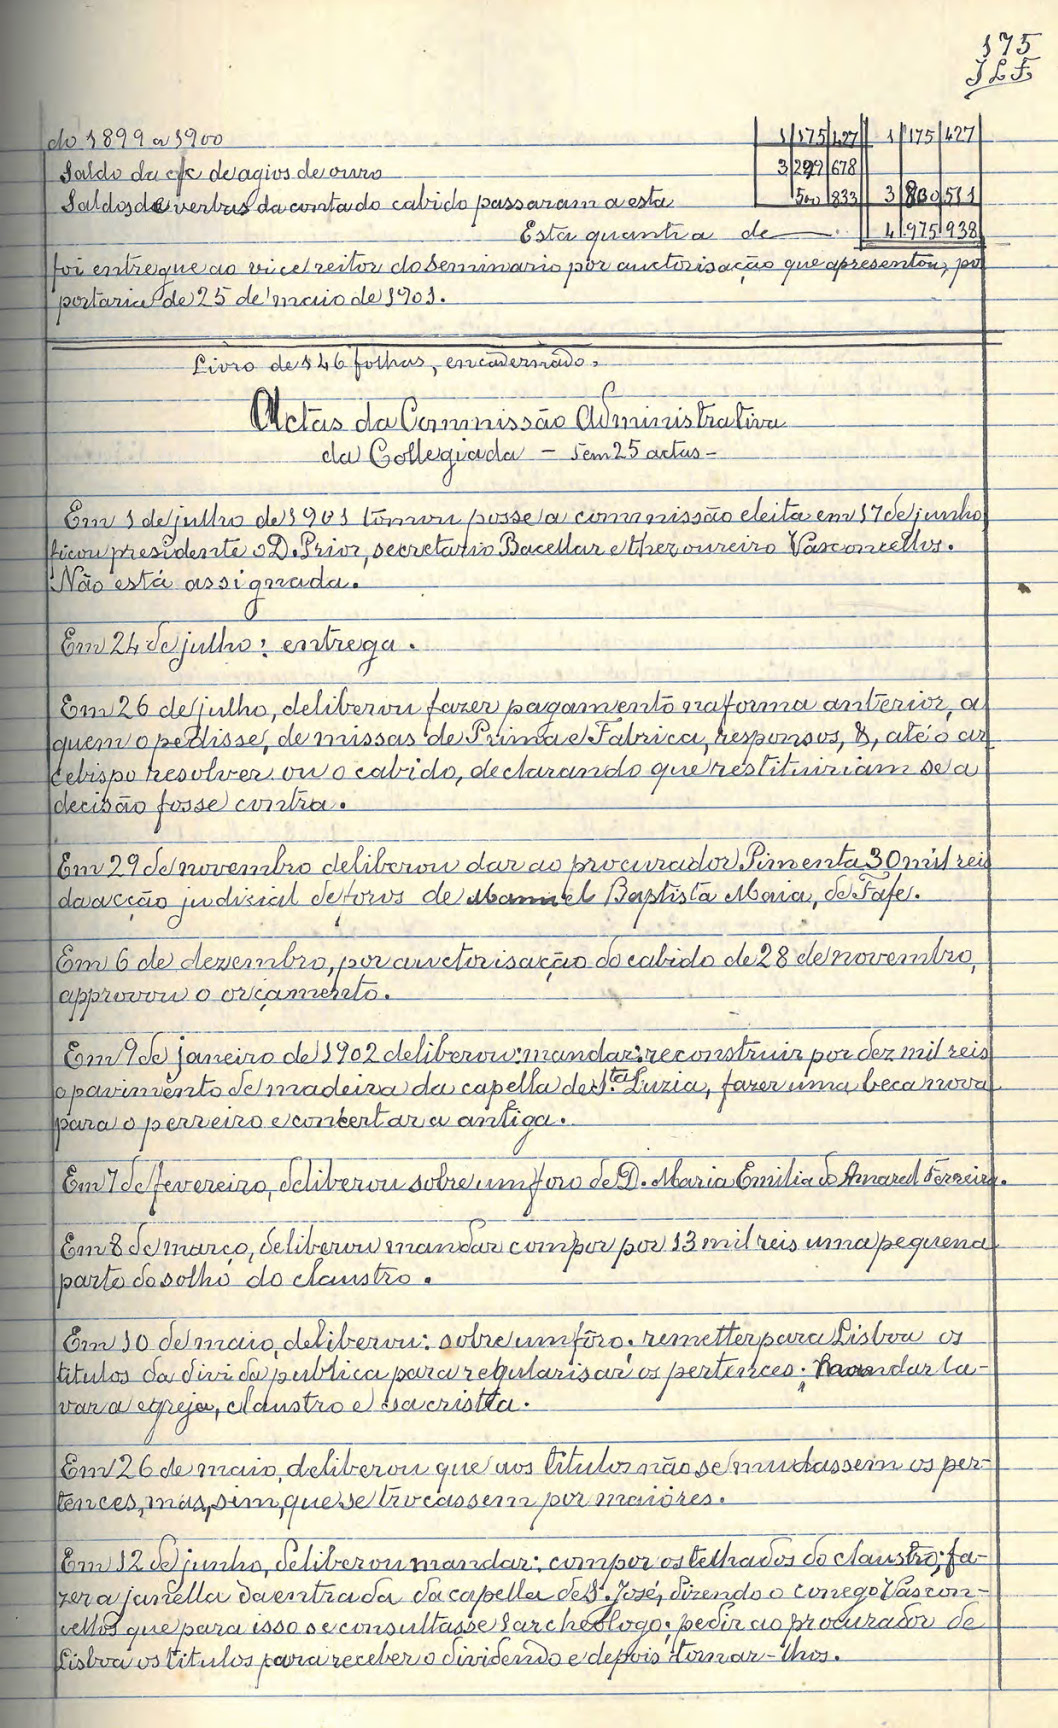 175
J L F.
do 1899 a 1900 1|175|427 1|175|427
Saldo da c/c de agios de ouro 3|299|678
Saldos de verbas da conta do cabido passaram a esta 500|833 3|800|511
Esta quantia de 4|975|938
foi entregue ao vice reitor do Seminario por auctorisação que apresentou, po
portaria de 25 de maio de 1901.
Livro de 146 folhas, encadernado.
Actas da Commissão Administrativa
da Collegiada - Tem 25 actas -
Em 1 de julho de 1901 tomou posse a commissão eleita em 17 de junho
ficou presidente o D. Prior, secretario Bacellar e thezoureiro Vasconcellos.
Não está assignada.
Em 24 de julho: entrega.
Em 26 de julho, deliberou fazer pagamento na forma anterior, a
quem o pedisse, de missas de Prima e Fabrica, responsos, &, até o ar
cebispo resolver ou o cabido, declarando que restituiriam se a
decisão fosse contra.
Em 29 de novembro deliberou dar ao procurador Pimenta 30 mil reis
da acção judicial de foros de Manuel Baptista Maia, de Fafe.
Em 6 de dezembro, por auctorisação do cabido de 28 de novembro,
approvou o orçamento.
Em 9 de janeiro de 1902 deliberou: mandar: reconstruir por dez mil reis
o pavimento de madeira da capella de S.ta Luzia, fazer uma beca nova
para o perreiro e concertar a antiga.
Em 7 de fevereiro, deliberou sobre um foro de D. Maria Emilia do Amaral Ferreira.
Em 8 de março, deliberou mandar compor por 13 mil reis uma pequena
parte do solho do claustro.
Em 10 de maio, deliberou: sobre um fôro; remetter para Lisboa os
titulos da divida publica para regularisar os pertences; mandar la-
var a egreja, claustro e sacristia.
Em 26 de maio, deliberou que aos titulos não se mudassem os per-
tences, mas, sim, que se trocassem por maiores.
Em 12 de junho, deliberou mandar: compor os telhados do claustro; fa-
zer a janella da entrada da capella de S. José, dizendo o conego Vascon-
cellos que para isso se consultasse 1 archeologo; pedir ao procurador de
Lisboa os titulos para receber o dividendo e depois tornar-lhos.